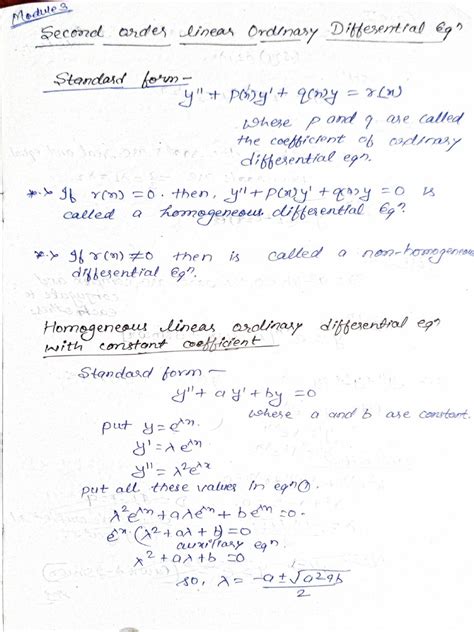 Module 3
Second order linear Ordinary Differential Eqn
Standard form -
y'' + p(x)y' + q(x)y = r(x)
where p and q are called
the coefficient of ordinary
differential eqn.
*·> If r(x) = 0. then, y'' + p(x)y' + q(x)y = 0 is
called a homogeneous differential Eqn.
*·> If r(x) ≠ 0 then is called a non-homogeneous
differential Eqn.
Homogeneous linear ordinary differential eqn
with constant coefficient
Standard form -
y'' + a y' + by = 0
where a and b are constant.
put y = e^λx
y' = λ e^λx
y'' = λ²e^λx
put all these values in eqn ①.
λ²e^λx + aλe^λx + b e^λx = 0.
e^λx (λ² + aλ + b) = 0
auxiliary eqn.
λ² + aλ + b = 0
so, λ = -a ± √a²4b / 2